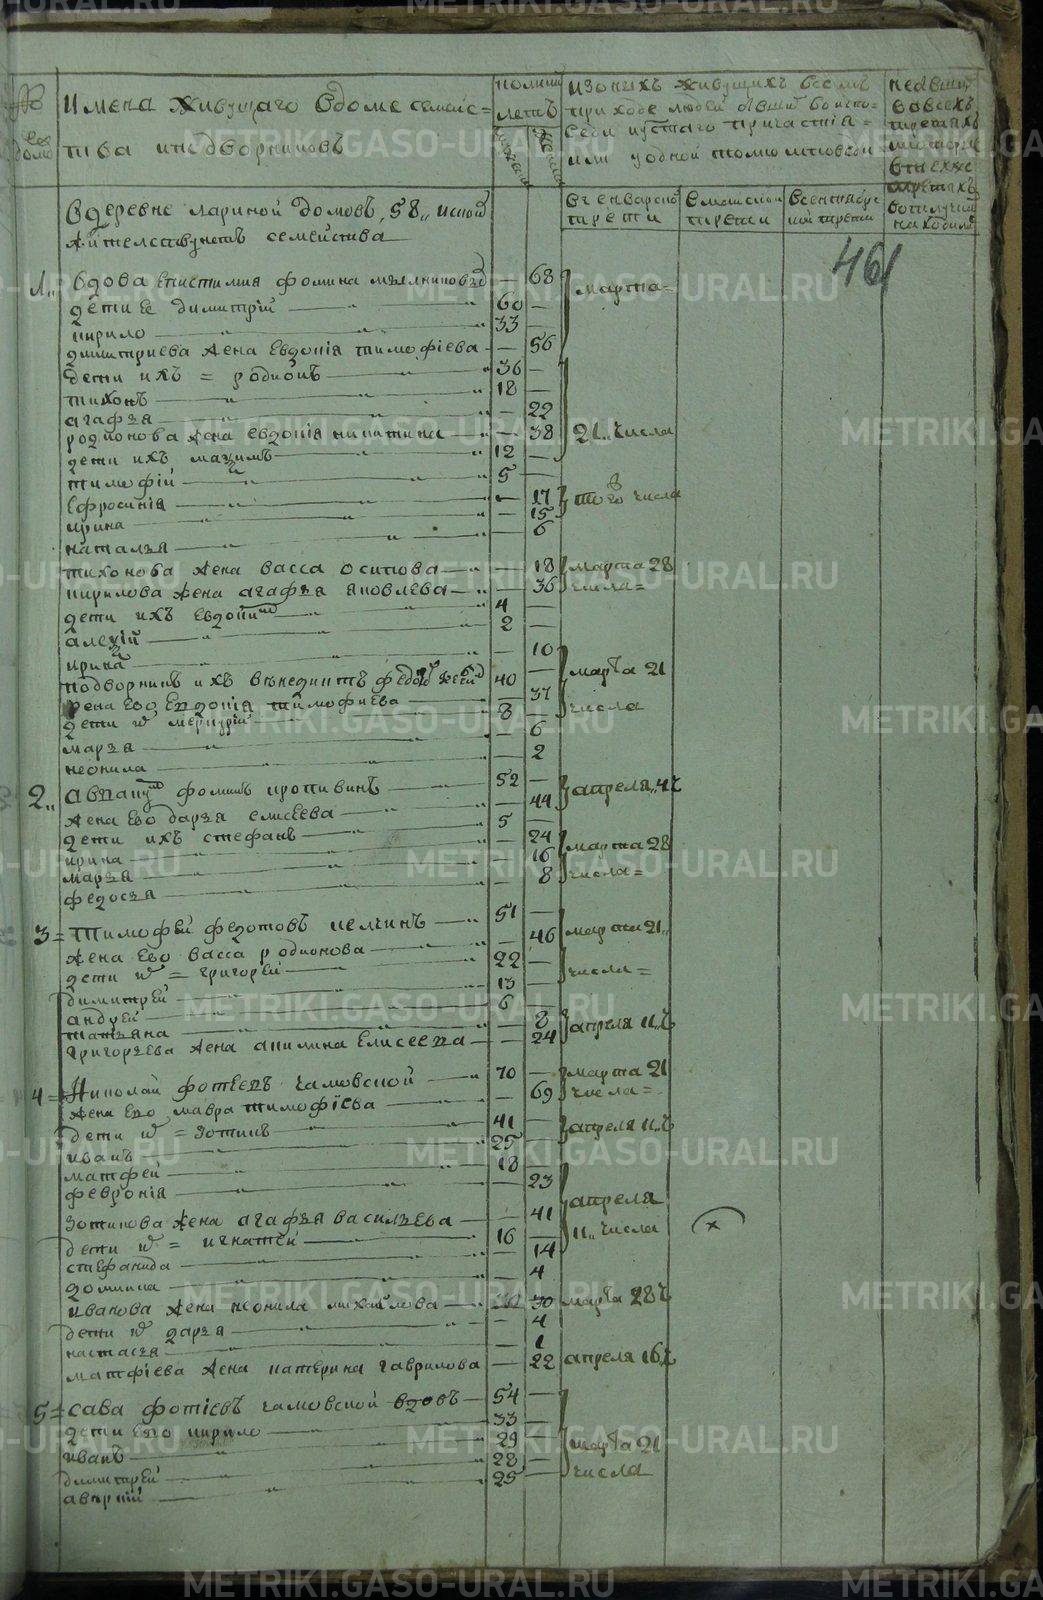 №
домо
Имена живущаго вдоме семейс=
тва иподворниковъ
лѣтъ
Изоныхъ живущихъ всемъ
приходе людей бывши
святаго причастія=
или уодной толко исповеди
вовсехъ
третяхъ
втехже
третяхъ
вгенварской
трети
вмаиской
трети
всентябрс
кой трети
461
вдеревне лариной домовъ, 58,,
жителствуетъ семейства
1,, вдова епистимия фомина 68 марта=
дети ее димитрій 60
кирило 33
димитриева жена евдокія тимофіева 56
дети ихъ = родионъ 36
тихонъ 18
агафья 22
родионова жена евдокія никитина 38 21,, числа
дети ихъ максимъ 12
тимофій 5
ефросинія 17 того числа
ирина 15
наталья 6
тихонова жена васса осипова 18 марта 28
кирилова жена агафья яковлева 36 числа=
дети ихъ евдоким 4
алексій 2
ирина 10
подворникъ ихъ 40 марта 21
жена ево евдокія тимофиева 37 числа
дети меркурій 8
марья 6
неонила 2
2,, фоминъ кротивинъ 52 апреля,, 4 ч
жена ево дарья елисеева 44
дети ихъ стефанъ 5
ирина 24 марта 28
марья 16 числа=
федосья 8
3= тимофей федотовъ келчинъ 51 марта 21,,
жена ево васса родионова 46
дети григорей 22 числа=
димитрей 13
андрей 6
татьяна 8 апреля 11,,ч
григорьева жена акилина елисеева 24
4= николай фотіевъ чамовской 70 марта 21
жена ево мавра тимофіева 69 числа=
дети = зотикъ 41 апреля 11,,ч
иванъ 25
матфей 18
февронія 23 апреля
зотикова жена агафья василъева 41 11,, числа
дети = игнатей 16
стефанида 14
домника 4
иванова жена неонила михайлова 30 марта 28 ч
дети дарья 4
настасья 1
матфіева жена катерина гаврилова 22 апреля 16,,ч
5= сава фотіевъ чамовской вдовъ 54
дети ево кирило 33
иванъ 29 марта 21
димитрей 28 числа
25
METRIKI.GASO-URAL.RU